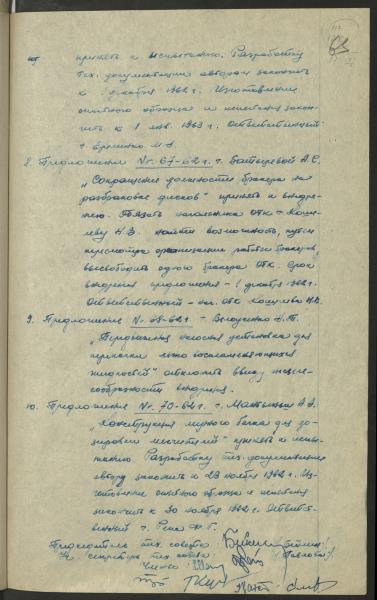 63
принять к испытанию. Разработку
тех. документации автором закончить
к 1 декабря 1962 г. Изготовление
опытного образца и испытания закон-
чить к 1 янв. 1963 г. Ответственный -
т. Еременко
8. Предложение № 67-62 г. т. Батыревой А.С.
„Сокращение должности бракера на
разбраковке дисков" принять к внедре-
нию. Обязать начальника ОТК т.
Н.З. найти возможность, путем
пересмотра организации работы бракеров,
высвободить одного бракера ОТК. Срок
внедрения предложения - 1 декабря 1962 г.
Ответственный - нач. ОТК
9. Предложение № 68-62 г. т.
„Передвижная насосная установка для
перекачки легко воспламеняющихся
жидкостей" отклонить ввиду нецеле-
сообразности внедрения.
10. Предложение № 70-62 г. т. А.А.
„Конструкция мерного бачка для до-
зировки мягчителей" принять к испы-
танию. Разработку тех. документации
автору закончить к 23 ноября 1962 г. Из-
готовление опытного образца и испытания
закончить к 30 ноября 1962 г. Ответст-
венный т. Ф.Г.
Председатель тех. совета
секретарь тех. совета
Члены: